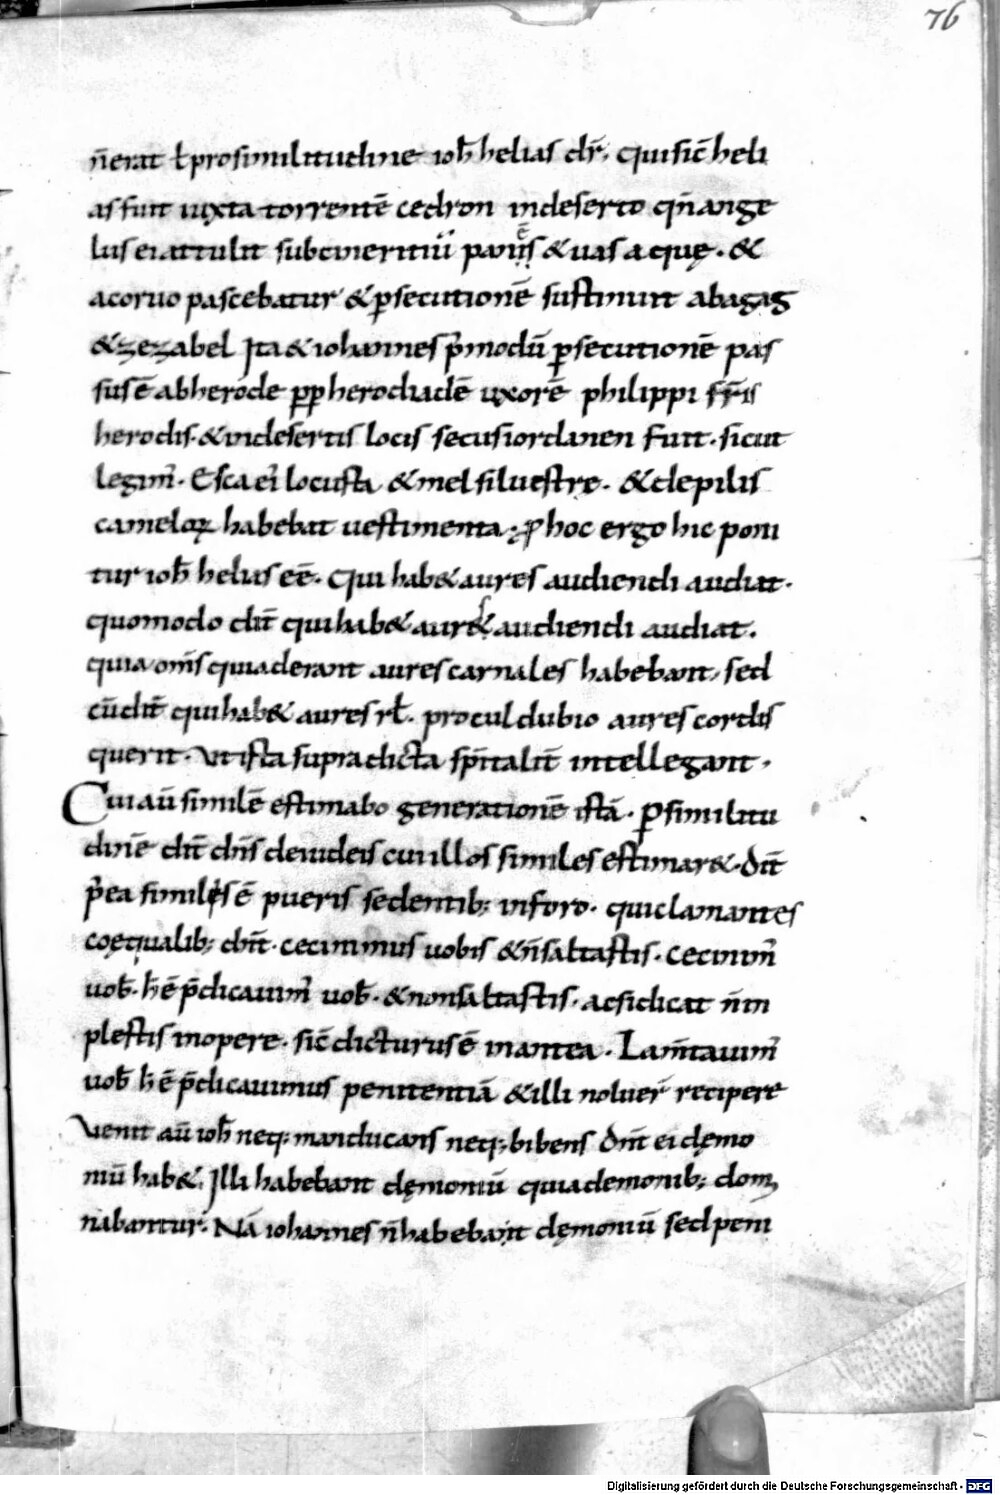 76
n̄erat ł prosimilitudine ioh̄ helias dr̄, qui sic̄ heli
as fuit iuxta torrentē cedron in deserto qn̄ ange
lus ei attulit subcineritiū panis & uas acquę. &
a coruo pascebatur & p̱secutionē sustinuit ab agag
& zezabel Ita & iohannes p̄modū p̱secutionē pas
sus ē ab herode pp̱ herodiadē uxorē philippi fr̄is
herodis. & in desertis locis secus iordanen fuit. sicut
legim̄. Esca eī locusta & mel siluestre. & de pilis
cameloꝝ habebat uestimenta. ꝓ hoc ergo hic poni
tur ioh̄ helias eē. Qui hab& aures audiendi audiat.
quomodo dīt qui hab& aures audiendi audiat.
quia om̄s qui aderant aures carnales habebant, sed
cū dīt qui hab& aures rł. procul dubio aures cordis
querit. Ut ista supradicta sp̄italit̄ intellegant,
Cui aū similē estimabo generationē istā. P̱ similitu
dinē dīt dn̄s de iudeis cui illos similes estimar&. Dīt
p̄ea similis ē pueris sedentib; in foro. qui clamantes
coęqualib; dn̄t. cecinimus uobis & n̄ saltastis. Cecinim̄
uob̄. h̄ ē p̄dicauim̄ uob̄. & non saltastis, ac si dicat n̄ in
plestis in opere. sic̄ dicturus ē in antea. Lam̄tauim̄
uob̄ h̄ ē p̄dicauimus penitentiā & illi noluer̄ recipere
Venit aū ioh̄ neq; manducans neq; bibens Dn̄t ei dęmo
niū hab&. Illi habebant dęmoniū quia demonib; dom
nabantur. Nā iohannes n̄ habebant dęmoniū sed peni
Digitalisierung gefördert durch die Deutsche Forschungsgemeinschaft - DFG